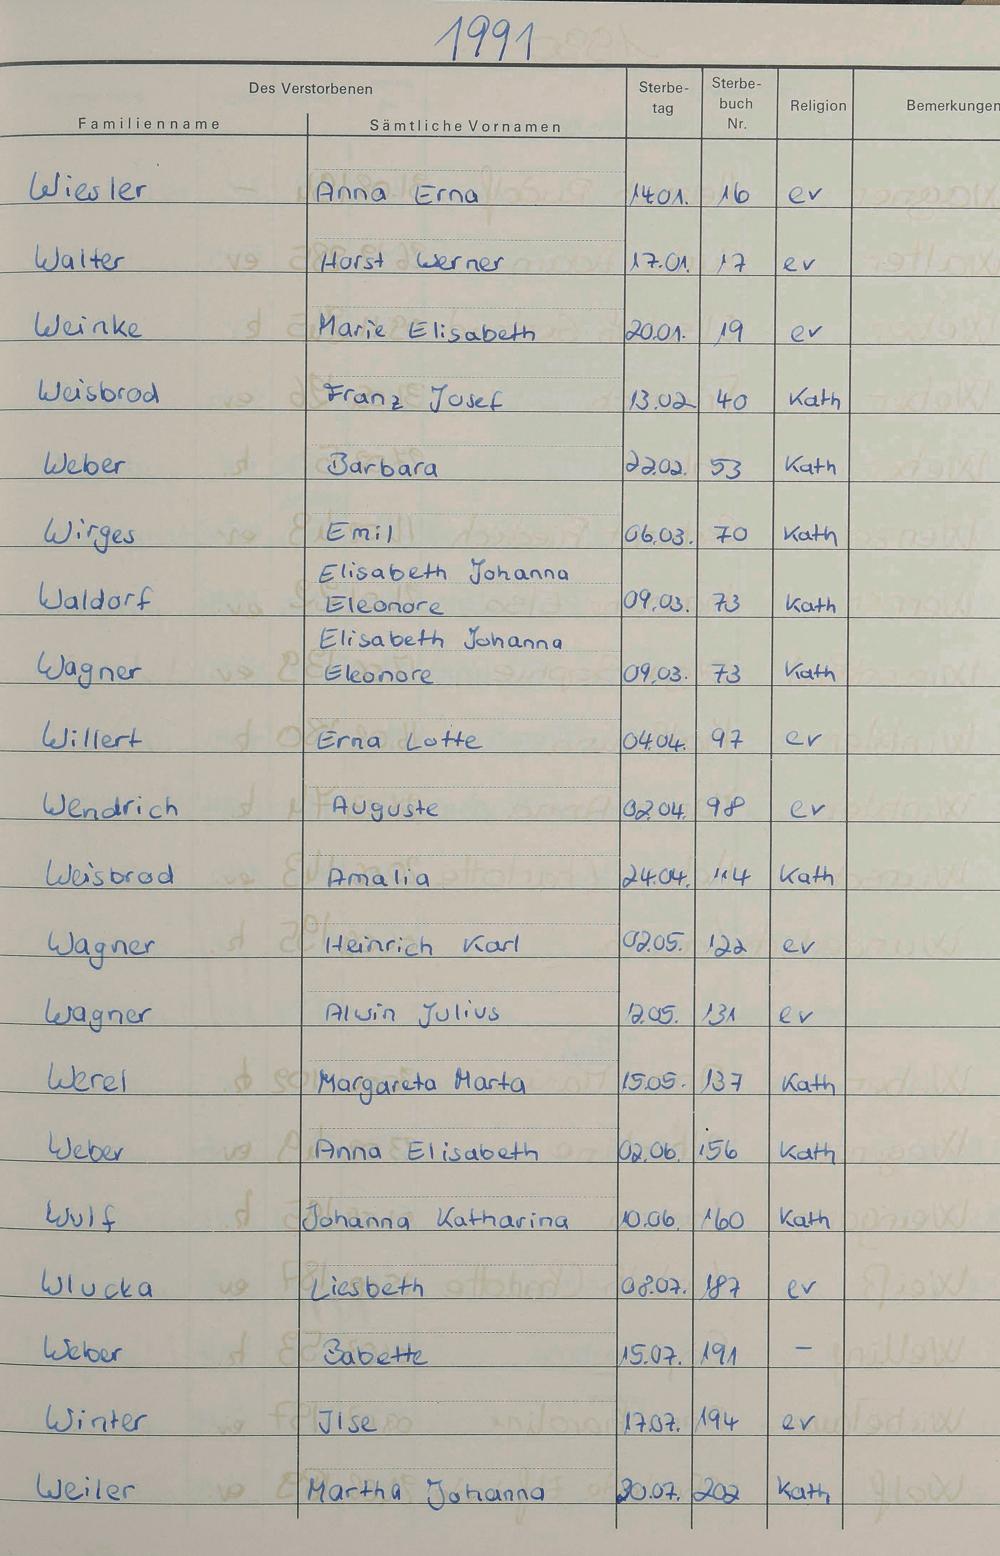 1991
Des Verstorbenen
Familienname Sämtliche Vornamen Sterbe-tag Sterbe-buch Nr. Religion Bemerkungen
Wiesler Anna Erna 14.01. 16 ev
Walter Horst Werner 17.01. 17 ev
Weinke Marie Elisabeth 20.01. 19 ev
Weisbrod Franz Josef 13.02 40 Kath
Weber Barbara 22.02. 53 Kath
Wirges Emil 06.03. 70 Kath
Elisabeth Johanna
Waldorf Eleonore 09.03. 73 Kath
Elisabeth Johanna
Wagner Eleonore 09.03. 73 Kath
Willert Erna Lotte 04.04. 97 ev
Wendrich Auguste 02.04. 98 ev
Weisbrod Amalia 24.04. 114 Kath
Wagner Heinrich Karl 02.05. 122 ev
Wagner Alwin Julius 12.05. 131 ev
Werel Margareta Marta 15.05. 137 Kath
Weber Anna Elisabeth 02.06. 156 Kath
Wulf Johanna Katharina 10.06. 160 Kath
Wlucka Liesbeth 08.07. 187 ev
Weber Babette 15.07. 191 –
Winter Ilse 17.07. 194 ev
Weiler Martha Johanna 30.07. 202 Kath